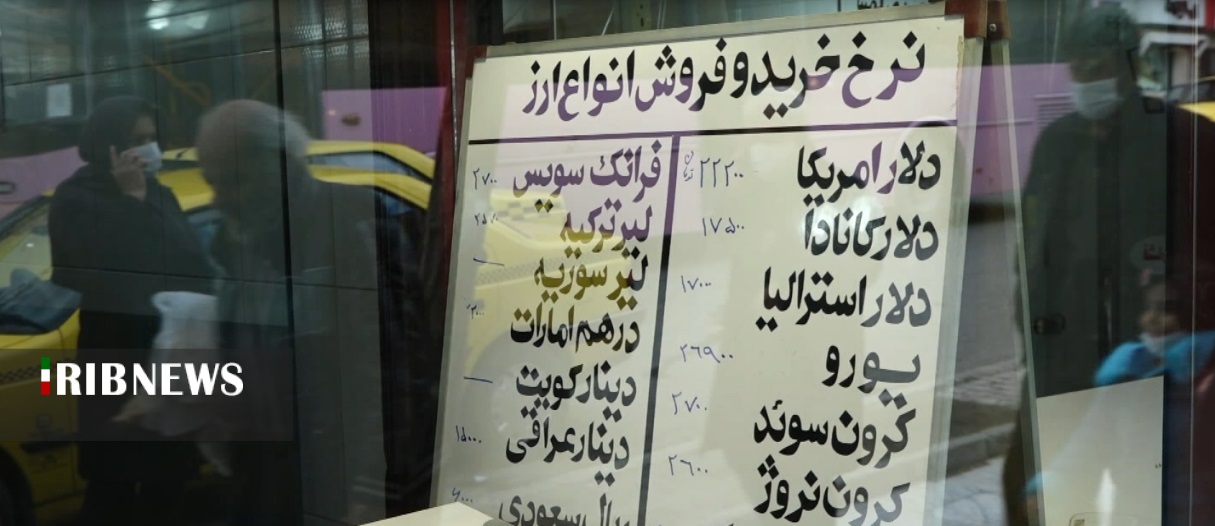 نرخ خرید و فروش انواع ارز
دلار امریکا ۲۲۲۰۰
دلار کانادا ۱۷۵۰۰
دلار استرالیا ۱۷۰۰۰
یورو ۲۶۹۰۰
کرون سوئد ۲۷۰۰
کرون نروژ ۲۶۰۰
فرانک سویس
لیر ترکیه
لیر سوریه —
درهم امارات
دینار کویت —
دینار عراقی ۱۵۰۰۰
ریال سعودی
IRIBNEWS